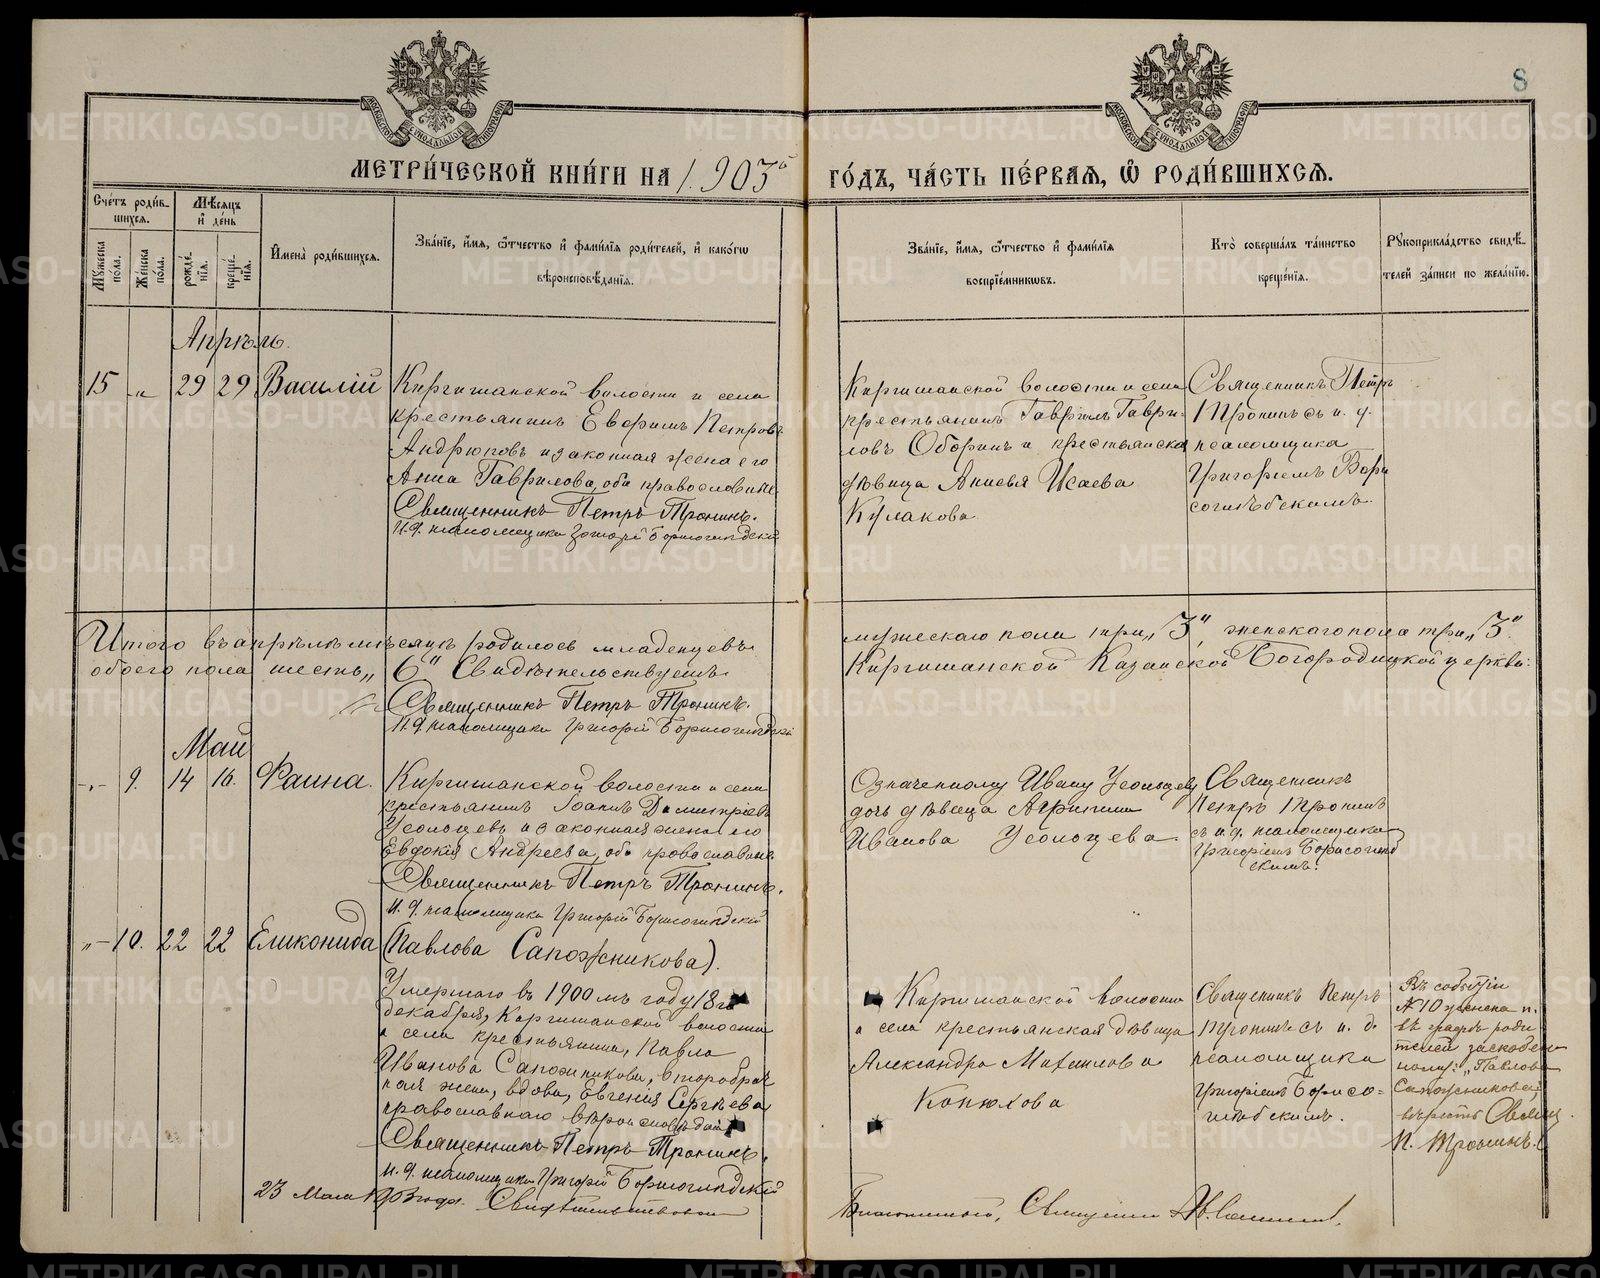 8
МЕТРИ́ЧЕСКОЙ КНИ́ГИ НА 1903й ГО́ДЪ, ЧА́СТЬ ПЕ́РВАЯ, Ѿ РОДИ́ВШИХСѦ.
Сче́тъ роди́в-
шихся.
Му́жеска
по́ла.
Же́нска
по́ла.
Мѣ́сяцъ
и҆ де́нь
рожде́-
нія.
креще́-
нія.
И҆мена̀ роди́вшихся.
Зва́ніе, и҆́мя, ѻ҆́тчество и҆ фами́лія роди́телей, и҆ како́гѡ
вѣроисповѣ́данія.
Зва́ніе, и҆́мя, ѻ҆́тчество и҆ фами́лія
воспріе́мникѡвъ.
Кто̀ соверша́лъ та́инство
креще́нія.
Рꙋкоприкла́дство свидѣ́-
телей за́писи по жела́нію.
Апрѣль.
15 „ 29 29 Василій
Киргишанской волости и села
крестьянинъ Ефримъ Петровъ
Андрюковъ и законная жена его
Анна Гаврилова, оба православные
Священникъ Петръ Тронинъ.
И. д. псаломщика Григорій Борисоглѣбскій
Киргишанской волости и села
крестьянинъ Гавріилъ Гаври-
ловъ Оборинъ и крестьянская
дѣвица Анисья Исаева
Кулакова
Священникъ Петръ
Тронинъ съ и. д.
псаломщика
Григоріемъ Бори
соглѣбскимъ.
Итого въ апрѣлѣ мѣсяцѣ родилось младенцевъ мужескаго пола три „3", женскаго пола три „3"
обоего пола шесть „6" Свидѣтельствуемъ Киргишанской Казанской Богородицкой церкви:
Священникъ Петръ Тронинъ.
И. д. псаломщика Григорій Борисоглѣбскій
Май
-„- 9. 14 16. Фаина.
Киргишанской волости и села
крестьянинъ Іоаннъ Димитріевъ
Усольцевъ и законная жена его
Евдокія Андреева, оба православные
Священникъ Петръ Тронинъ.
И. д. псаломщика Григорій Борисоглѣбскій
Означенному Ивану Усольцеву
дочь дѣвица Агрипина
Иванова Усольцева
Священникъ
Петръ Тронинъ
съ и. д. псаломщика
Григоріемъ Борисоглѣб
скимъ.
„- 10. 22 22 Еликонида
(Павлова Сапожникова).
Умершаго въ 1900мъ году 18го
декабря, Киргишанской волости
и села крестьянина, Павла
Иванова Сапожникова, второбрач
ная жена, вдова, Евгенія Сергѣева
православнаго вѣроисповѣданія
Священникъ Петръ Тронинъ.
И. д. псаломщика Григорій Борисоглѣбскій
Киргишанской волости
и села крестьянская дѣвица
Александра Михаилова
Конюхова
Священникъ Петръ
Тронинъ съ и. д.
псаломщика
Григоріемъ Борисо-
глѣбскимъ.
Въ событіи
№ 10 женска п.
въ графѣ роди
телей
„Павлова
Сапожникова"
вѣрить Свящ.
П. Тронинъ.
23 Мая 1903 года. Свидѣтельствовалъ Благочинный, Священникъ
METRIKI.GASO-URAL.RU